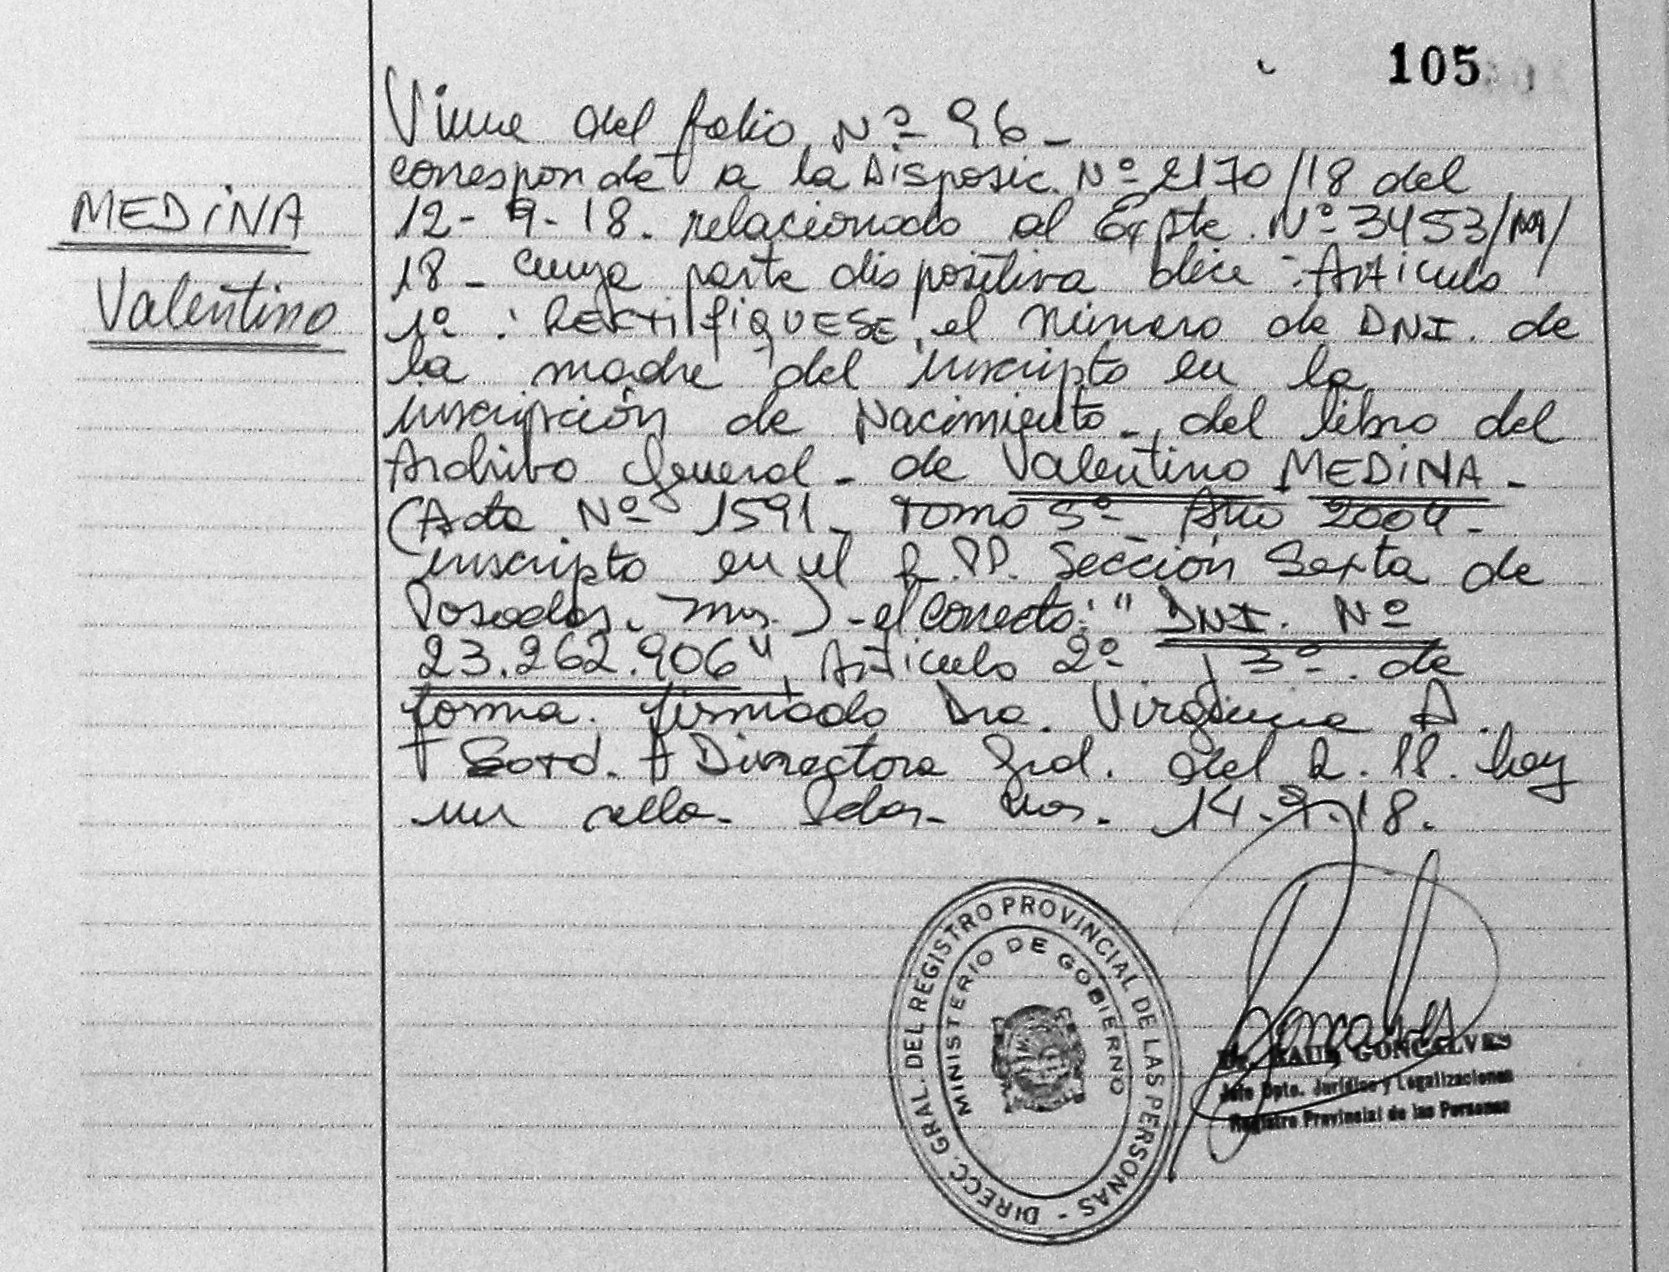 105
MEDINA
Valentino
Viene del folio Nº 96 -
corresponde a la Disposic. Nº 2170/18 del
12-9-18. relacionado al Expte. Nº 3453/M/
18 - cuya parte dispositiva dice: Artículo
1º: RECTIFIQUESE, el número de DNI. de
la madre del inscripto en la
inscripción de Nacimiento -, del libro del
Archivo General - de Valentino MEDINA -
(Acta Nº 1591 - Tomo 5º Año 2004 -
inscripto en el R.PP. Sección Sexta de
Posadas, Mns.) - el correcto: "DNI. Nº
23.262.906", Artículo 2º 3º de
forma. firmado Dra. Virginia A.
Directora Gral. del R.PP. hay
un sello - Pdas - Mns. 14.9.18.
DIRECC. GRAL. DEL REGISTRO PROVINCIAL DE LAS PERSONAS -
MINISTERIO DE GOBIERNO
Goncalves
Dr. RAUL GONCALVES
Jefe Dpto. Jurídico y Legalizaciones
Registro Provincial de las Personas